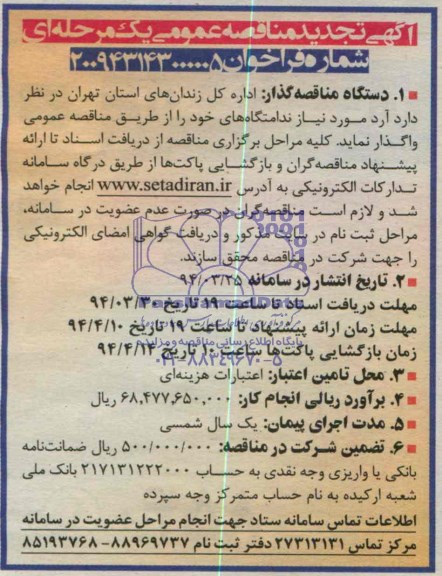 آگهی تجدید مناقصه عمومی یک مرحله‌ای
شماره فراخوان ۲۰۰۹۴۳۱۴۳۰۰۰۰۰۵
۱. دستگاه مناقصه‌گذار: اداره کل زندان‌های استان تهران در نظر
دارد آرد مورد نیاز ندامتگاه‌های خود را از طریق مناقصه عمومی
واگذار نماید. کلیه مراحل برگزاری مناقصه از دریافت اسناد تا ارائه
پیشنهاد مناقصه‌گران و بازگشایی پاکت‌ها از طریق درگاه سامانه
تدارکات الکترونیکی به آدرس www.setadiran.ir انجام خواهد
شد و لازم است مناقصه‌گران در صورت عدم عضویت در سامانه،
مراحل ثبت نام در سایت مذکور و دریافت گواهی امضای الکترونیکی
را جهت شرکت در مناقصه محقق سازند.
۲. تاریخ انتشار در سامانه ۹۴/۰۳/۲۵
مهلت دریافت اسناد تا ساعت ۱۹ تاریخ ۹۴/۰۳/۳۰
مهلت زمان ارائه پیشنهاد تا ساعت ۱۹ تاریخ ۹۴/۴/۱۰
پایگاه اطلاع رسانی مناقصه و مزایده
زمان بازگشایی پاکت‌ها ساعت ۱۰ تاریخ ۹۴/۴/۱۳
۰۲۱-۸۸۳۴۹۶۷۰-۵
۳. محل تامین اعتبار: اعتبارات هزینه‌ای
۴. برآورد ریالی انجام کار: ۶۸,۴۷۷,۶۵۰,۰۰۰ ریال
۵. مدت اجرای پیمان: یک سال شمسی
۶. تضمین شرکت در مناقصه: ۵۰۰/۰۰۰/۰۰۰ ریال ضمانت‌نامه
بانکی یا واریزی وجه نقدی به حساب ۲۱۷۱۳۱۲۲۲۰۰۰ بانک ملی
شعبه ارکیده به نام حساب متمرکز وجه سپرده
اطلاعات تماس سامانه ستاد جهت انجام مراحل عضویت در سامانه
مرکز تماس ۲۷۳۱۳۱۳۱ دفتر ثبت نام ۸۸۹۶۹۷۳۷- ۸۵۱۹۳۷۶۸